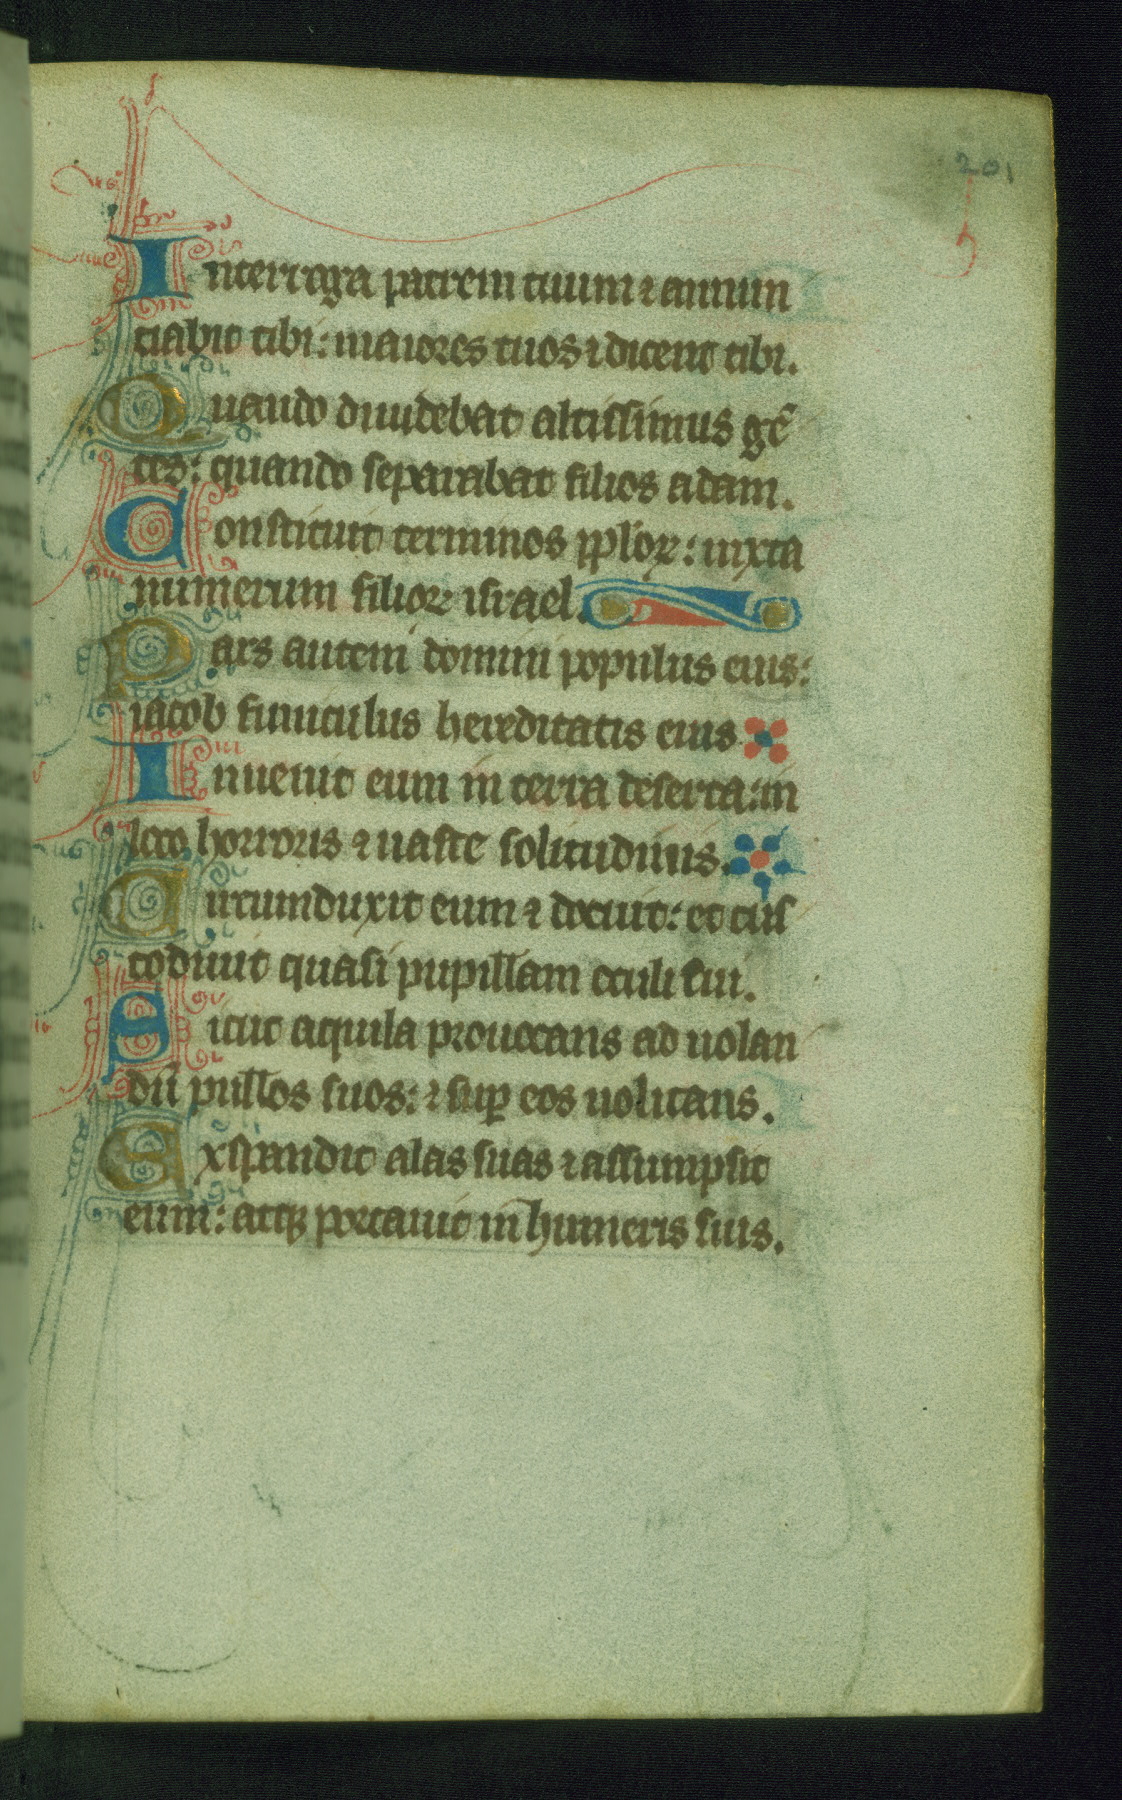 201
Interroga patrem tuum ⁊ annun
ciabit tibi: maiores tuos ⁊ dicent tibi.
Quando diuidebat altissimus gē
tes: quando separabat filios adam.
Constituit terminos pploꝝ: iuxta
numerum filioꝝ israel.
Pars autem domini populus eius:
iacob funiculus hereditatis eius
Inuenit eum in terra deserta: in
loco horroris ⁊ uaste solitudinis.
Circumduxit eum ⁊ docuit: et cus
todiuit quasi pupillam oculi sui.
Sicut aquila prouocans ad uolan
dū pullos suos: ⁊ suꝑ eos uolitans.
Expandit alas suas ⁊ assumpsit
eum: atqꝫ portauit in humeris suis.